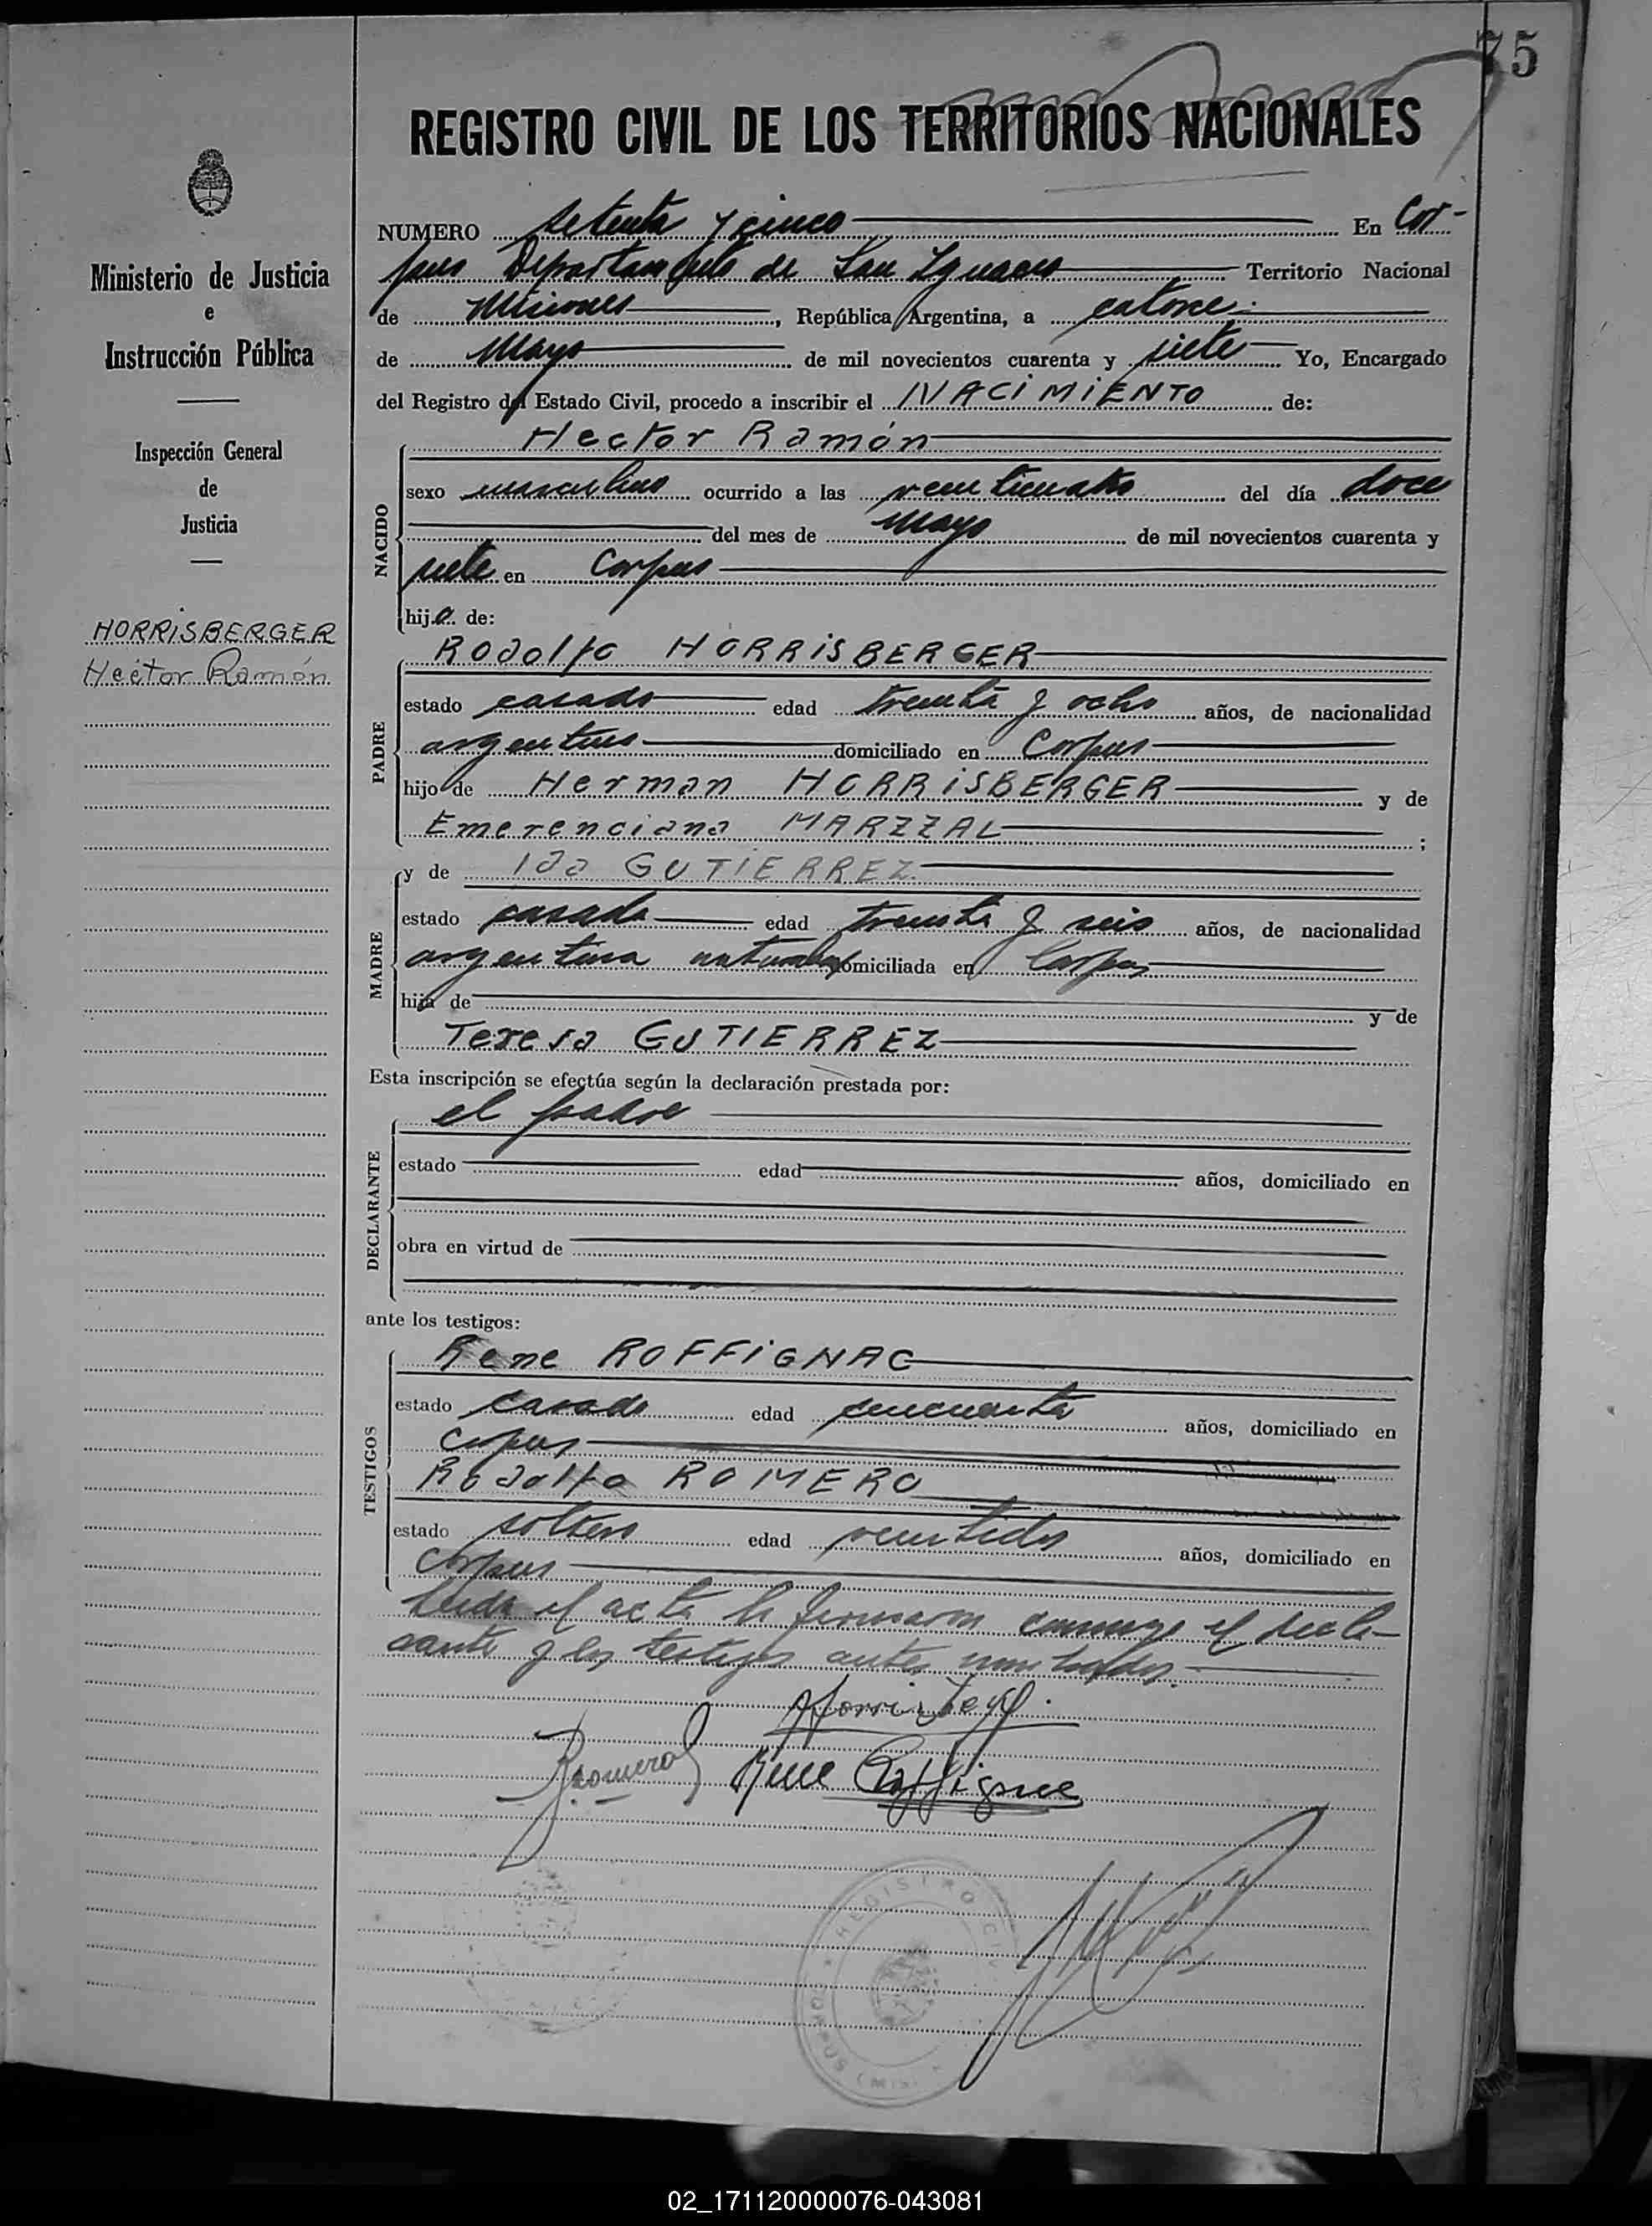 75
REGISTRO CIVIL DE LOS TERRITORIOS NACIONALES
Ministerio de Justicia
e
Instrucción Pública
Inspección General
de
Justicia
HORRISBERGER
Hector Ramón
NUMERO setenta y cinco En Cor-
pus Departamento de San Ignacio Territorio Nacional
de Misiones, República Argentina, a catorce
de Mayo de mil novecientos cuarenta y siete Yo, Encargado
del Registro del Estado Civil, procedo a inscribir el NACIMIENTO de:
NACIDO
Hector Ramón
sexo masculino ocurrido a las veinticuatro del día doce
del mes de Mayo de mil novecientos cuarenta y
siete en Corpus
hijo de:
PADRE
Rodolfo HORRISBERGER
estado casado edad treinta y ocho años, de nacionalidad
argentino domiciliado en Corpus
hijo de Herman HORRISBERGER y de
Emerenciana MARZZAL ;
MADRE
y de Ida GUTIERREZ
estado casada edad treinta y seis años, de nacionalidad
argentina natural domiciliada en Corpus
hija de y de
Teresa GUTIERREZ
Esta inscripción se efectúa según la declaración prestada por:
DECLARANTE
el padre
estado edad años, domiciliado en
obra en virtud de
ante los testigos:
TESTIGOS
Rene ROFFIGNAC
estado casado edad cincuenta años, domiciliado en
Corpus
Rodolfo ROMERO
estado soltero edad veintidos años, domiciliado en
Corpus
Leida el acta la firmaron conmigo el decla-
rante y los testigos antes nombrados.
Horrisberger
Romero Rene Roffignac
REGISTRO CIVIL
CORPUS (MIS.)
02_171120000076-043081